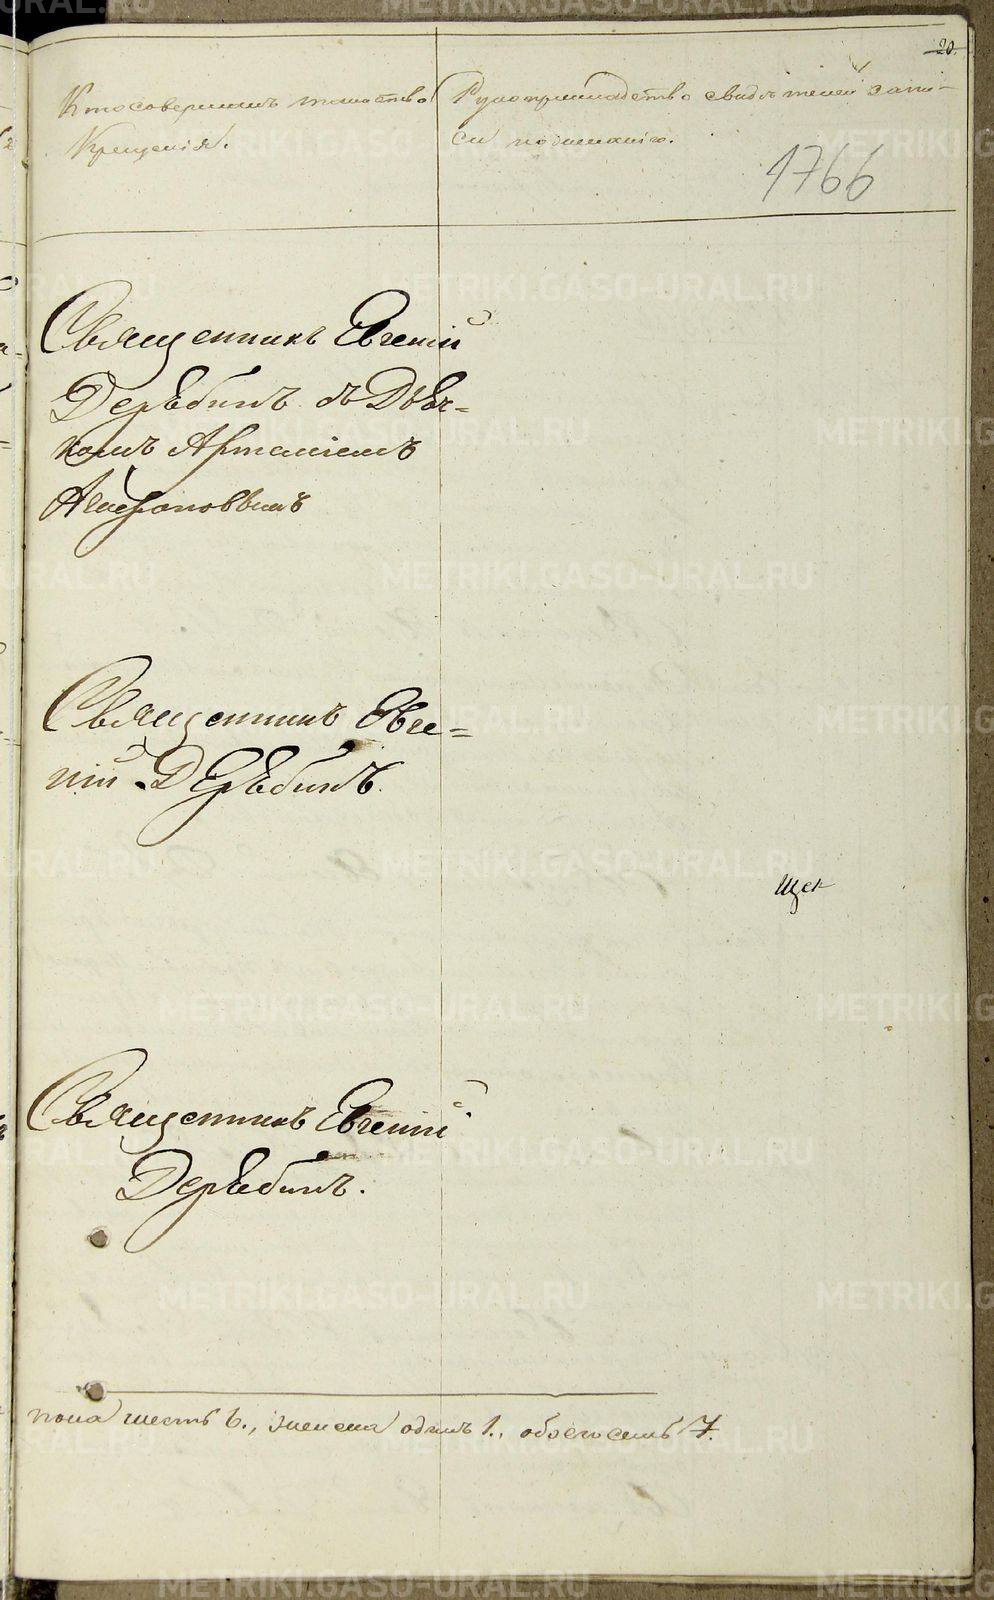 20.
Кто совершилъ таинство
Крещенія.
Рукоприкладство свидѣтелей запи-
си по желанію.
1766
Священникъ Евгеній
Дерябинъ съ Дьяч=
комъ
Священникъ Евге=
ній Дерябинъ.
Щек
Священникъ Евгеній
Дерябинъ.
пола шесть 6., женска одинъ 1., обоего семь 7.
METRIKI.GASO-URAL.RU